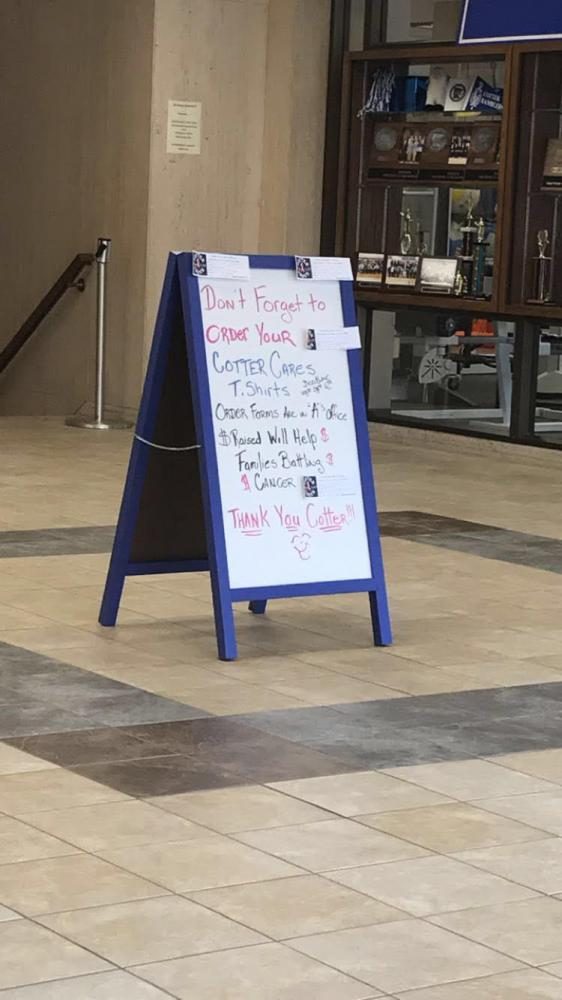 Don't Forget to
Order Your
Cotter Cares
T.Shirts
Order Forms Are in "A" office
$ Raised Will Help $
Families Battling $
$ Cancer
Thank You Cotter!!!
Cotter
Ramblers